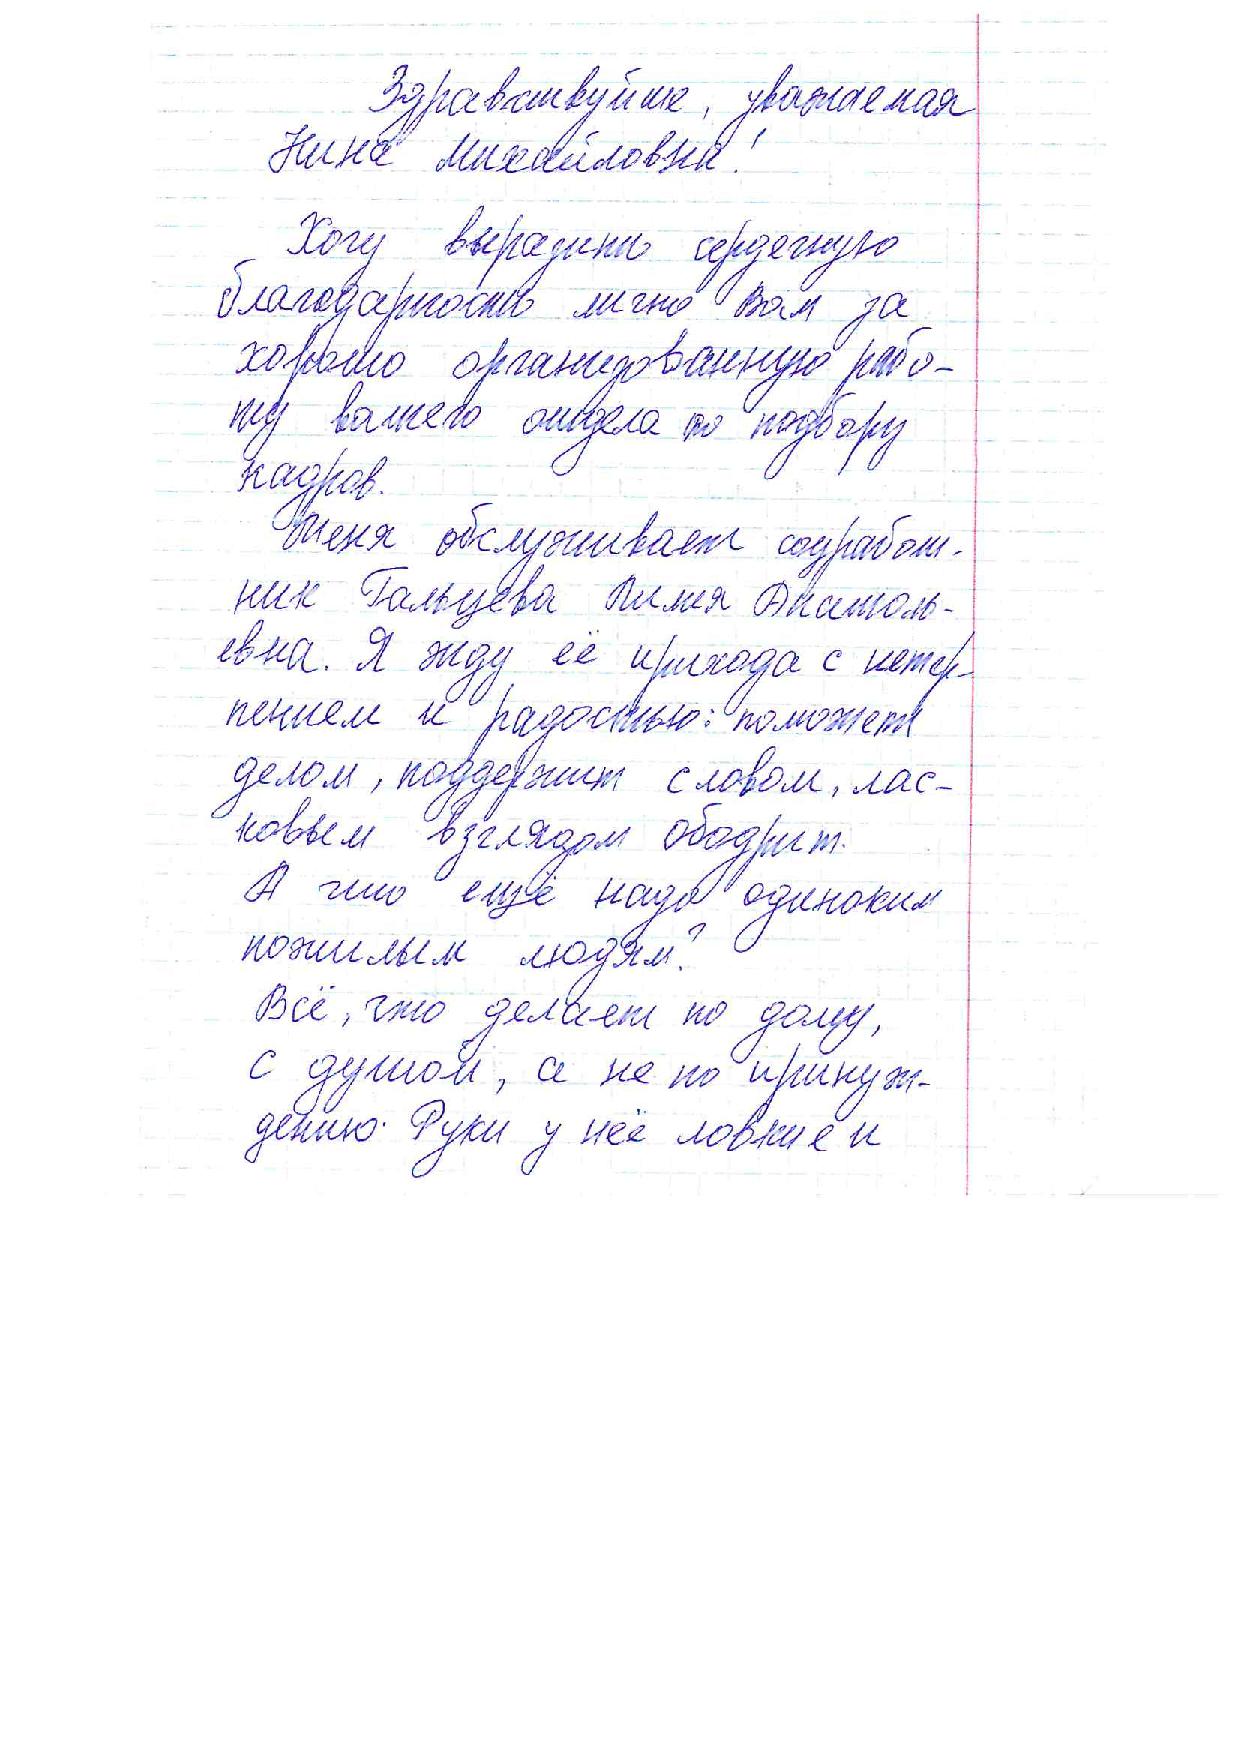 Здравствуйте, уважаемая
Нина Михайловна!
Хочу выразить сердечную
благодарность лично Вам за
хорошо организованную рабо-
ту вашего отдела по подбору
кадров.
Меня обслуживает соцработ-
ник Гальцева Лилия Анатоль-
евна. Я жду её прихода с нетер-
пением и радостью: поможет
делом, поддержит словом, лас-
ковым взглядом ободрит.
А что ещё надо одиноким
пожилым людям?
Всё, что делает по дому,
с душой, а не по принуж-
дению. Руки у неё ловкие и